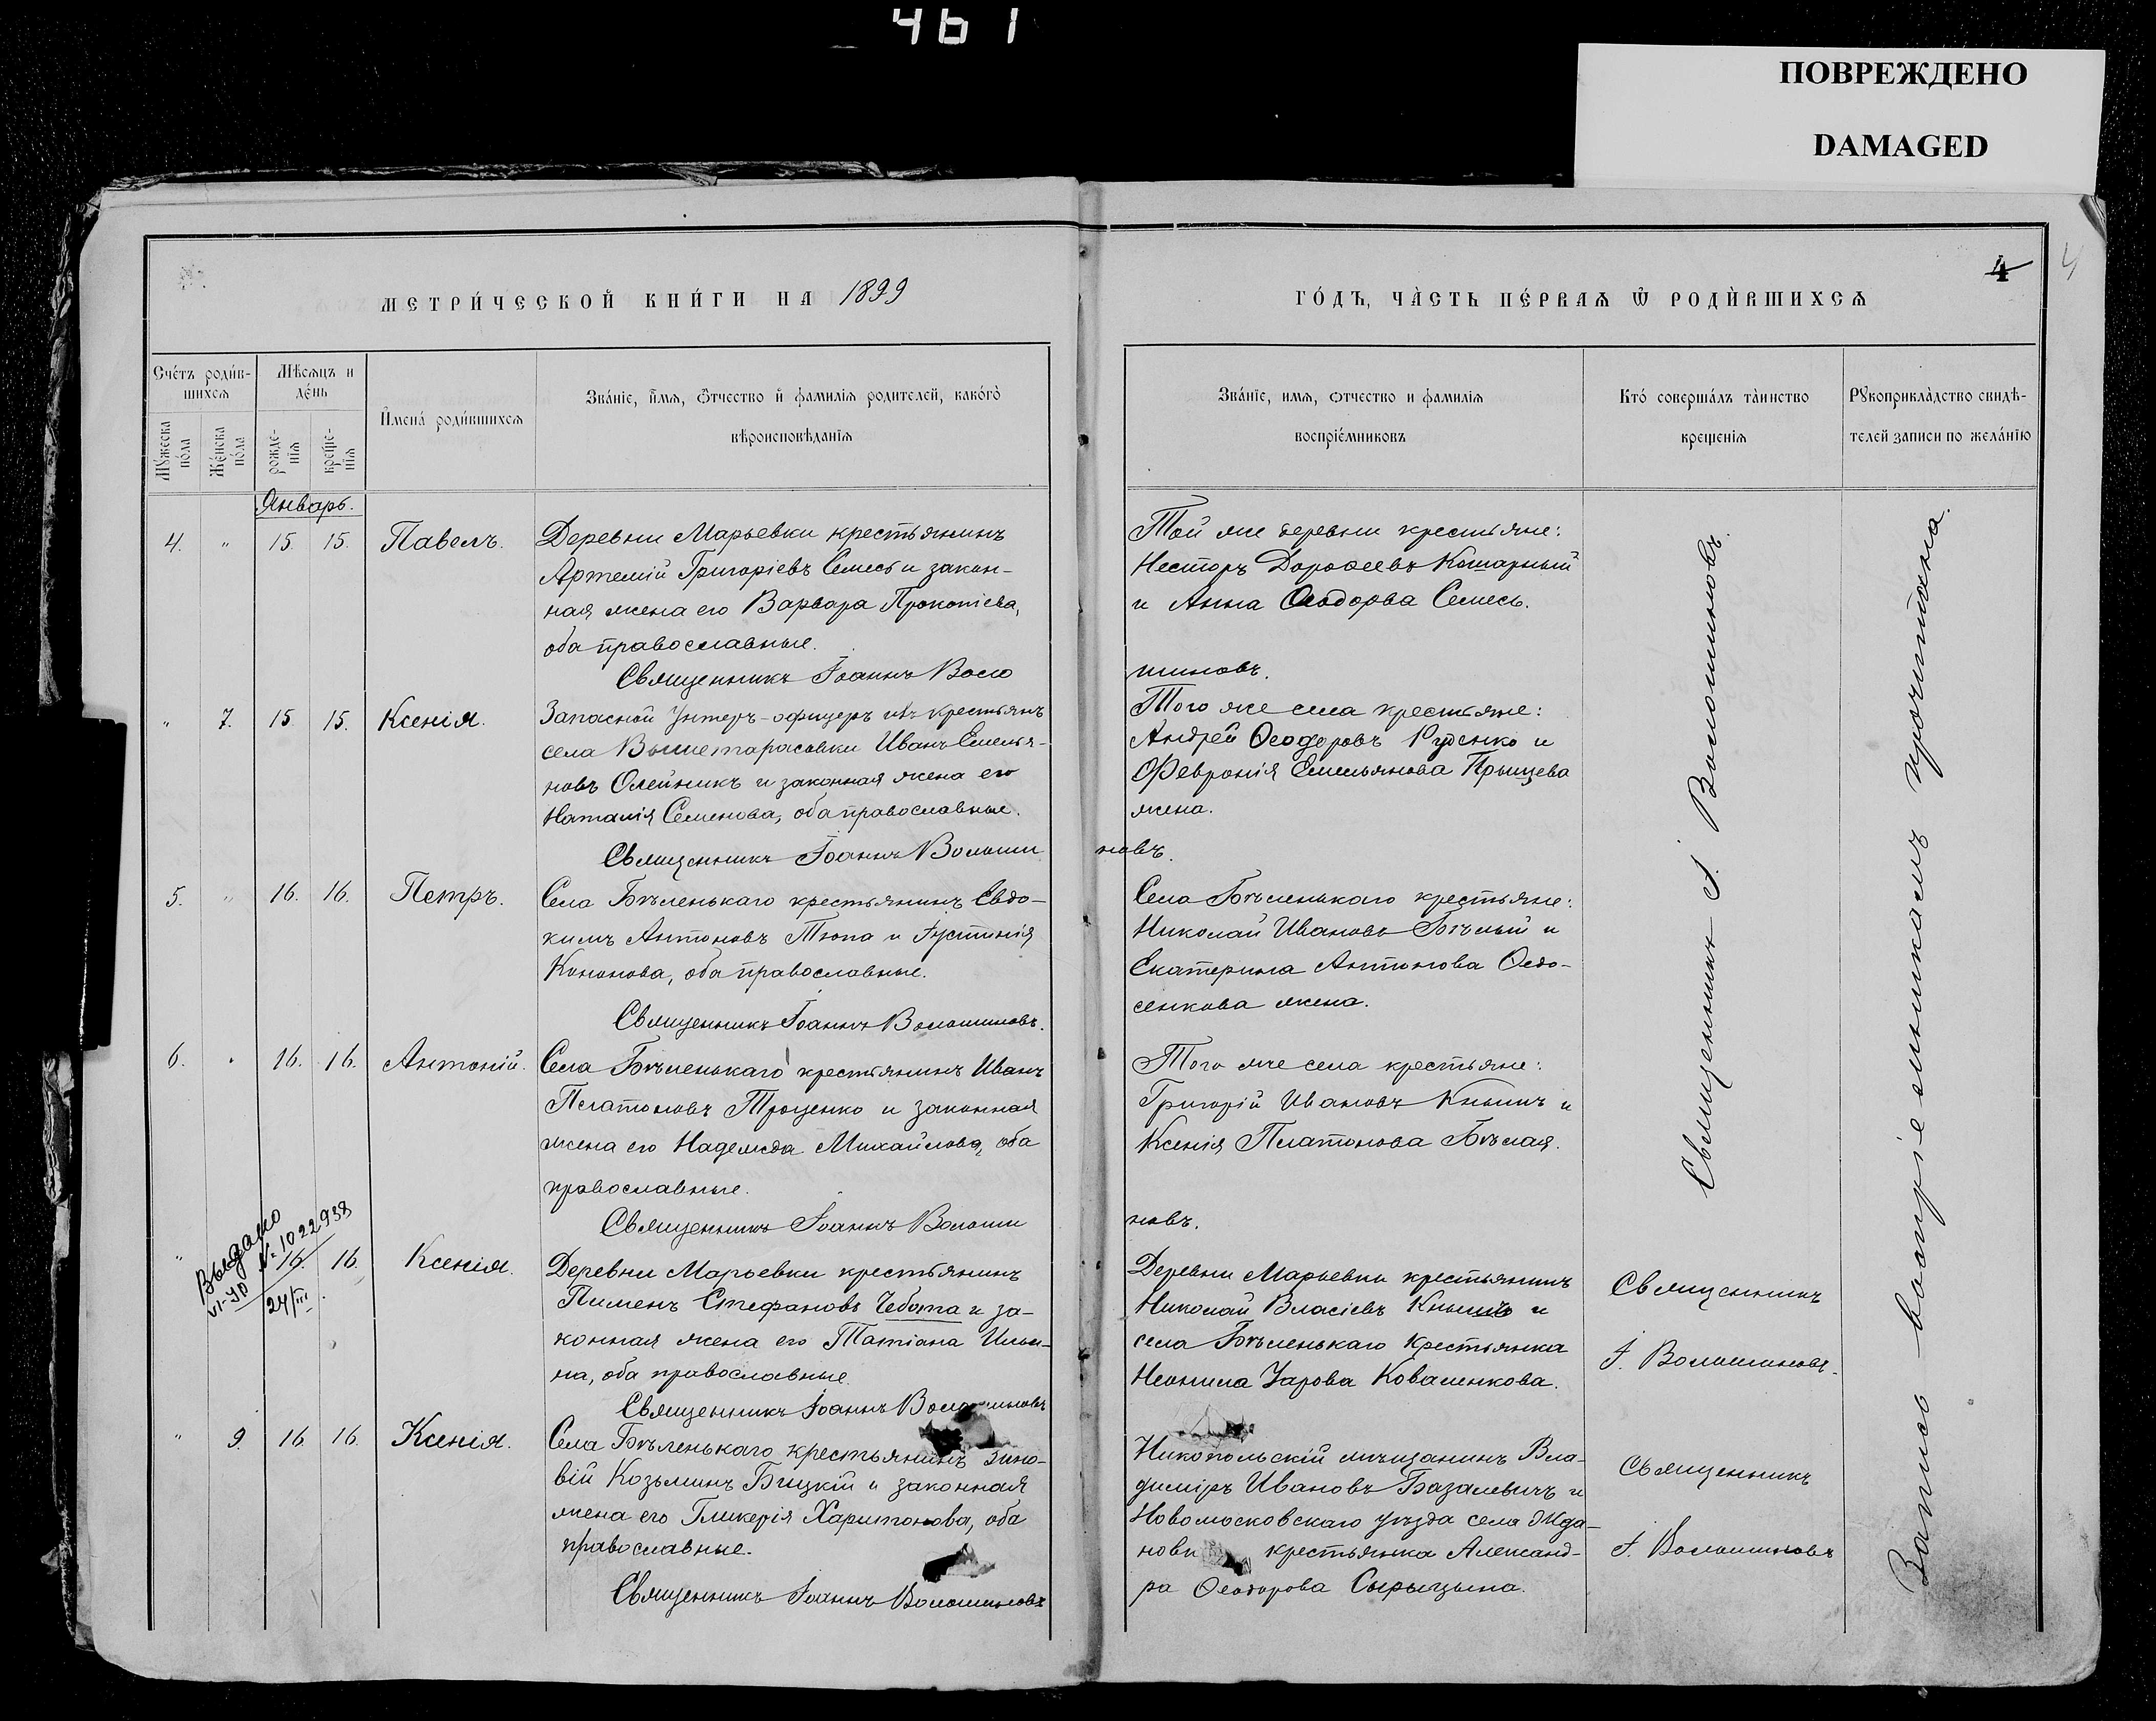 461
ПОВРЕЖДЕНО
DAMAGED
4
4
МЕТРИ́ЧЕСКОЙ КНИ́ГИ НА 1899
ГО́ДЪ, ЧА̀СТЬ ПЕ́РВАѦ Ѿ РОДЍВШИХСѦ
Счетъ родив-
шихсѧ
Мѣсѧцъ и
день
Имена родившихсѧ
Званїе, имѧ, ѻтчество и фамилїѧ родителей, какого
вѣроисповѣданїѧ
Мꙋжеска
пола
Женска
пола
рожде-
нїѧ
креще-
нїѧ
Званїе, имѧ, ѻтчество и фамилїѧ
воспрїемниковъ
Кто совершалъ таинство
крещенїѧ
Рꙋкоприкладство свидѣ-
телей записи по желанїю
Январь.
4. " 15. 15. Павелъ.
Деревни Марьевки крестьянинъ
Артемій Григоріевъ Семесь и закон-
ная жена его Варвара Прокопіева,
оба православные.
Священникъ Іоаннъ Воло
Той же деревни крестьяне:
Несторъ Дорофеевъ Кошарный
и Анна Ѳеодорва Семесь.
шиновъ.
" 7. 15. 15. Ксенія.
Запасной Унтеръ-офицеръ изъ крестьянъ
села Вышетарасовки Иванъ Емелья-
новъ Олейникъ и законная жена его
Наталія Семенова, оба православные.
Священникъ Іоаннъ Волоши
Того же села крестьяне:
Андрей Ѳеодоровъ Руденко и
Февронія Емельянова Прыщева
жена.
новъ.
5. " 16. 16. Петръ.
Села Бѣленькаго крестьянинъ Евдо-
кимъ Антоновъ Тюпа и Іустинія
Кононова, оба православные.
Священникъ Іоаннъ Волошиновъ.
Села Бѣленькаго крестьяне:
Николай Ивановъ Бѣлый и
Екатерина Антонова Ѳедо-
сенкова жена.
6. " 16. 16. Антоній.
Села Бѣленькаго крестьянинъ Иванъ
Платоновъ Троценко и законная
жена его Надежда Михайлова, оба
православные.
Священникъ Іоаннъ Волоши
Того же села крестьяне:
Григорій Ивановъ Кнышъ и
Ксенія Платонова Бѣлая.
новъ.
Выдано
№ 1022938
VI-ЯР
24/III
" 16. 16. Ксенія.
Деревни Марьевки крестьянинъ
Пименъ Стефановъ Чебота и за-
конная жена его Татіана Ильи-
на, оба православные
Священникъ Іоаннъ Волошиновъ
Деревни Марьевки крестьянинъ
Николай Власіевъ Кнышъ и
села Бѣленькаго крестьянка
Неонила Уарова Коваленкова.
Священникъ
І. Волошиновъ.
" 9. 16. 16. Ксенія.
Села Бѣленькаго крестьянинъ Зино-
вій Козьминъ Бицкій и законная
жена его Гликерія Харитонова, оба
православные.
Священникъ Іоаннъ Волошиновъ
Никопольскій мѣщанинъ Вла-
диміръ Ивановъ Базалевичъ и
Новомосковскаго уѣзда села Жда-
новки крестьянка Александ-
ра Ѳеодорова Сырыцына.
Священникъ
І. Волошиновъ
Священникъ І. Волошиновъ.
Запись воспріемникамъ прочитана.